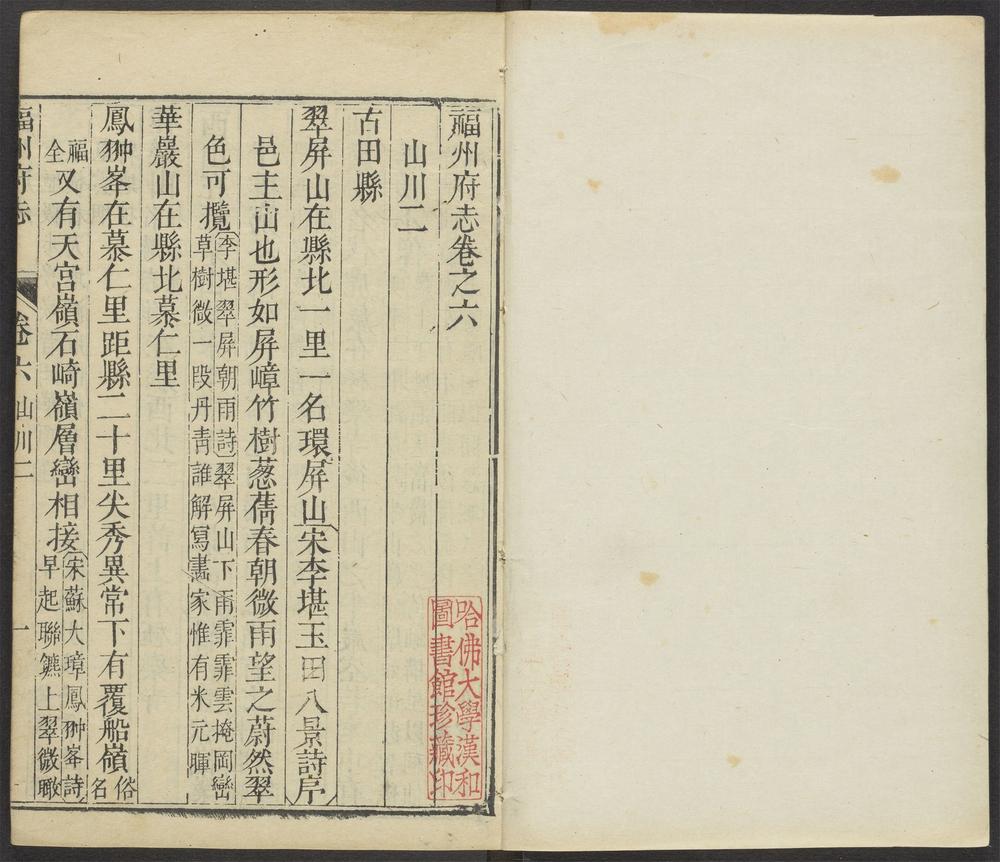 福州府志卷之六
山川二
古田縣
翠屏山在縣北一里一名環屏山宋李堪玉田八景詩序
邑主山也形如屏嶂竹樹葱蒨春朝微雨望之蔚然翠
色可攬李堪翠屏朝雨詩翠屏山下雨霏霏雲掩岡巒
草樹微一段丹青誰解寫畫家惟有米元暉
華巖山在縣北慕仁里
鳳翀峯在慕仁里距縣二十里尖秀異常下有覆船嶺俗名
福全又有天宮嶺石崎嶺層巒相接宋蘇大璋鳳翀峯詩
早起聯鑣上翠微瞰
福州府志
卷六
山川二
一
哈佛大學漢和
圖書館珍藏印